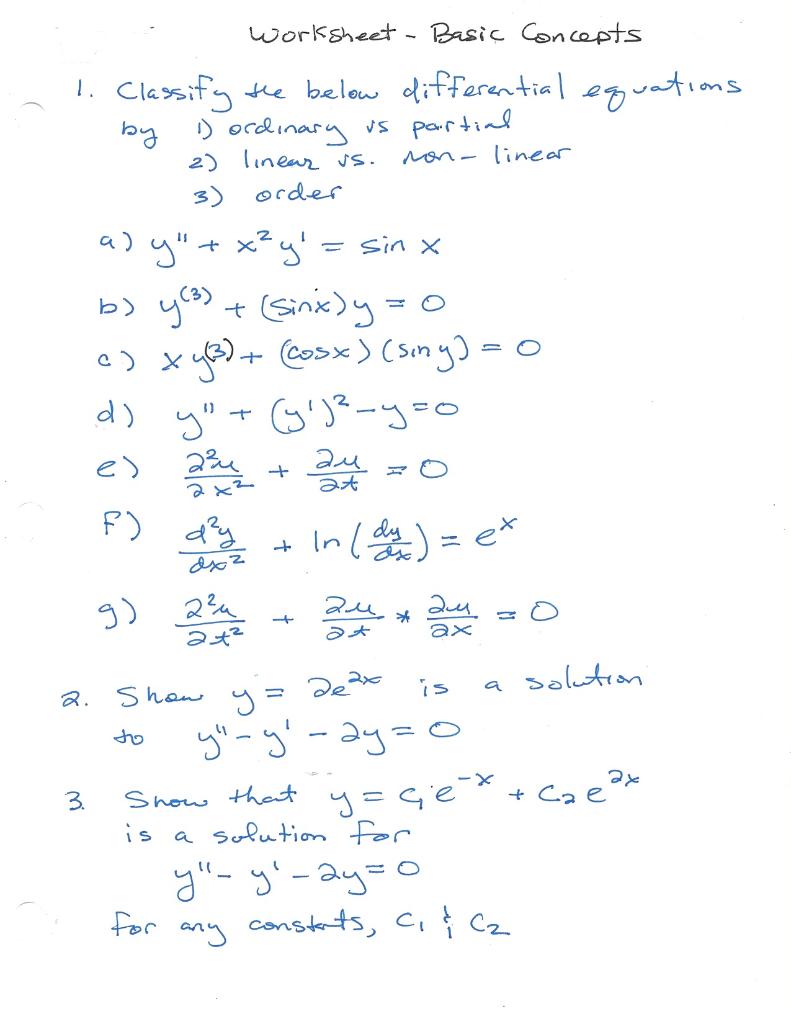 Worksheet - Basic Concepts
1. Classify the below differential equations
by 1) ordinary vs partial
2) linear vs. non-linear
3) order
a) y'' + x² y' = sin x
b) y⁽³⁾ + (sinx)y = 0
c) x y⁽³⁾ + (cosx)(siny) = 0
d) y'' + (y')² - y = 0
e) ∂²u/∂x² + ∂u/∂t = 0
f) d²y/dx² + ln(dy/dx) = eˣ
g) ∂²u/∂t² + ∂u/∂t * ∂u/∂x = 0
2. Show y = 2e²ˣ is a solution
to y'' - y' - 2y = 0
3. Show that y = C₁e⁻ˣ + C₂e²ˣ
is a solution for
y'' - y' - 2y = 0
for any constants, C₁ & C₂